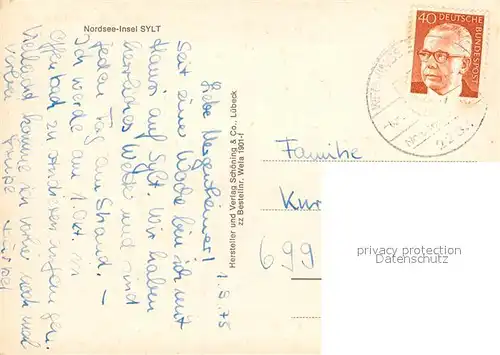 Nordsee-Insel SYLT
1.9.75
Liebe Mergentheimer!
Seit einer Woche bin ich mit
Hans auf Sylt. Wir haben
herrliches Wetter und sind
jeden Tag am Strand. –
Ich werde am 1. Okt. in
Vielleicht komme ich vorher noch mal
vorbei
Grüße
Hersteller und Verlag Schöning & Co., Lübeck
zz Bestellnr. Wela 1901-f
40 DEUTSCHE
BUNDESPOST
Familie
Kur
699
privacy protection